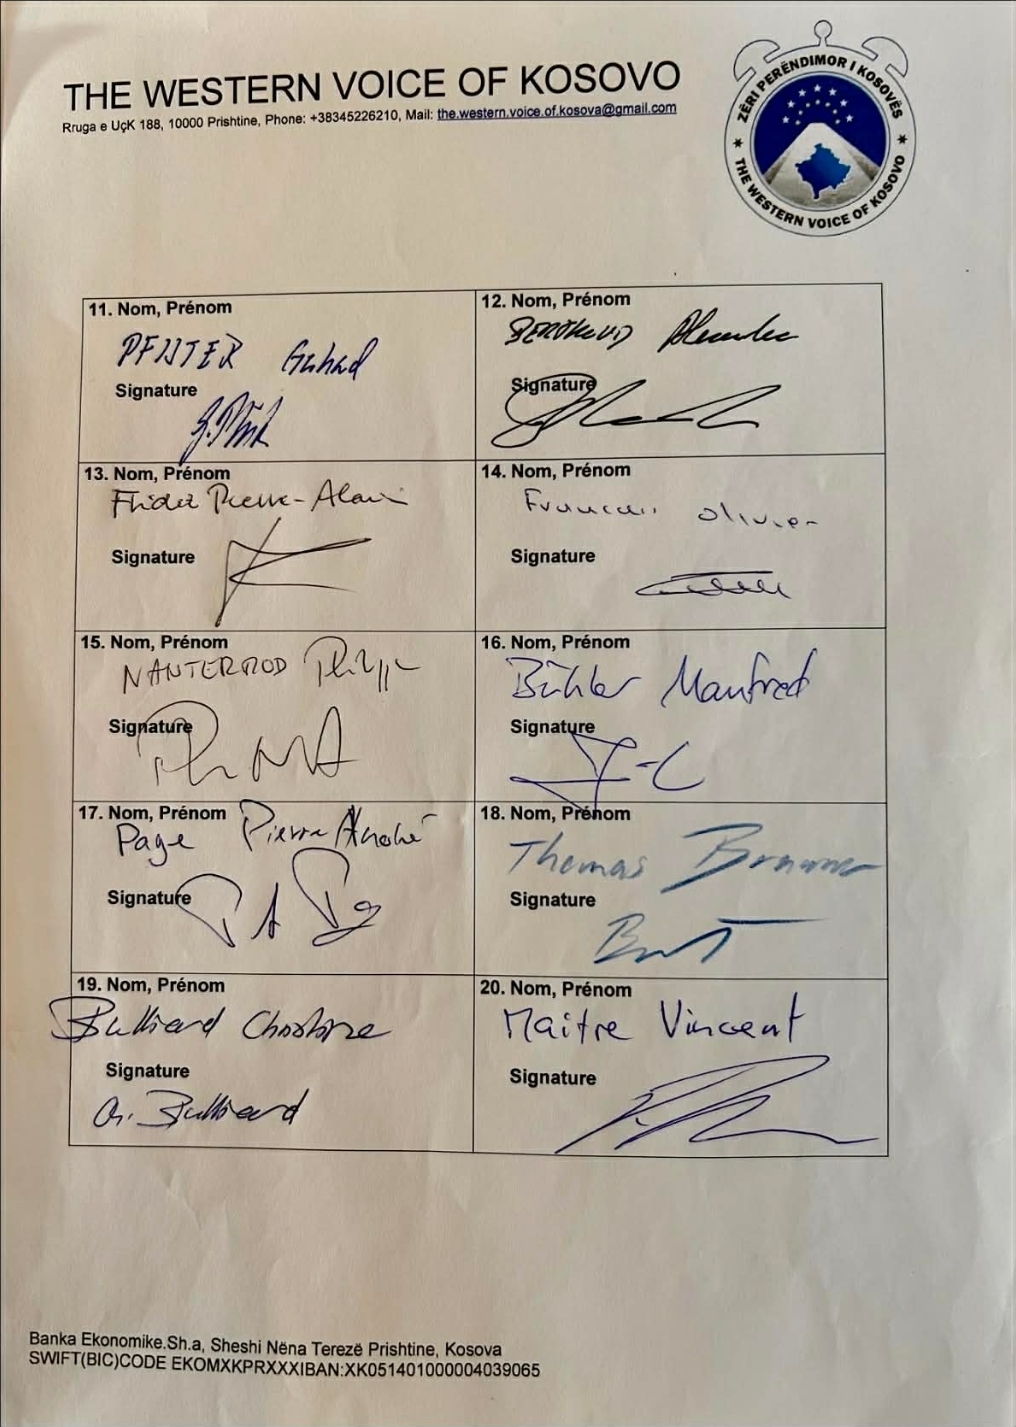 THE WESTERN VOICE OF KOSOVO
Rruga e UçK 188, 10000 Prishtine, Phone: +38345226210, Mail: the.western.voice.of.kosova@gmail.com
ZËRI PERËNDIMOR I KOSOVËS
THE WESTERN VOICE OF KOSOVO
11. Nom, Prénom
PFISTER Gerhard
Signature
12. Nom, Prénom
BERTHOUD
Signature
13. Nom, Prénom
Pierre-Alain
Signature
14. Nom, Prénom
Français Olivier
Signature
15. Nom, Prénom
NANTERMOD Philippe
Signature
16. Nom, Prénom
Bühler Manfred
Signature
17. Nom, Prénom
Page Pierre André
Signature
18. Nom, Prénom
Thomas
Signature
19. Nom, Prénom
Bulliard Christine
Signature
Ch. Bulliard
20. Nom, Prénom
Maitre Vincent
Signature
Banka Ekonomike.Sh.a, Sheshi Nëna Terezë Prishtine, Kosova
SWIFT(BIC)CODE EKOMXKPRXXXIBAN:XK051401000004039065